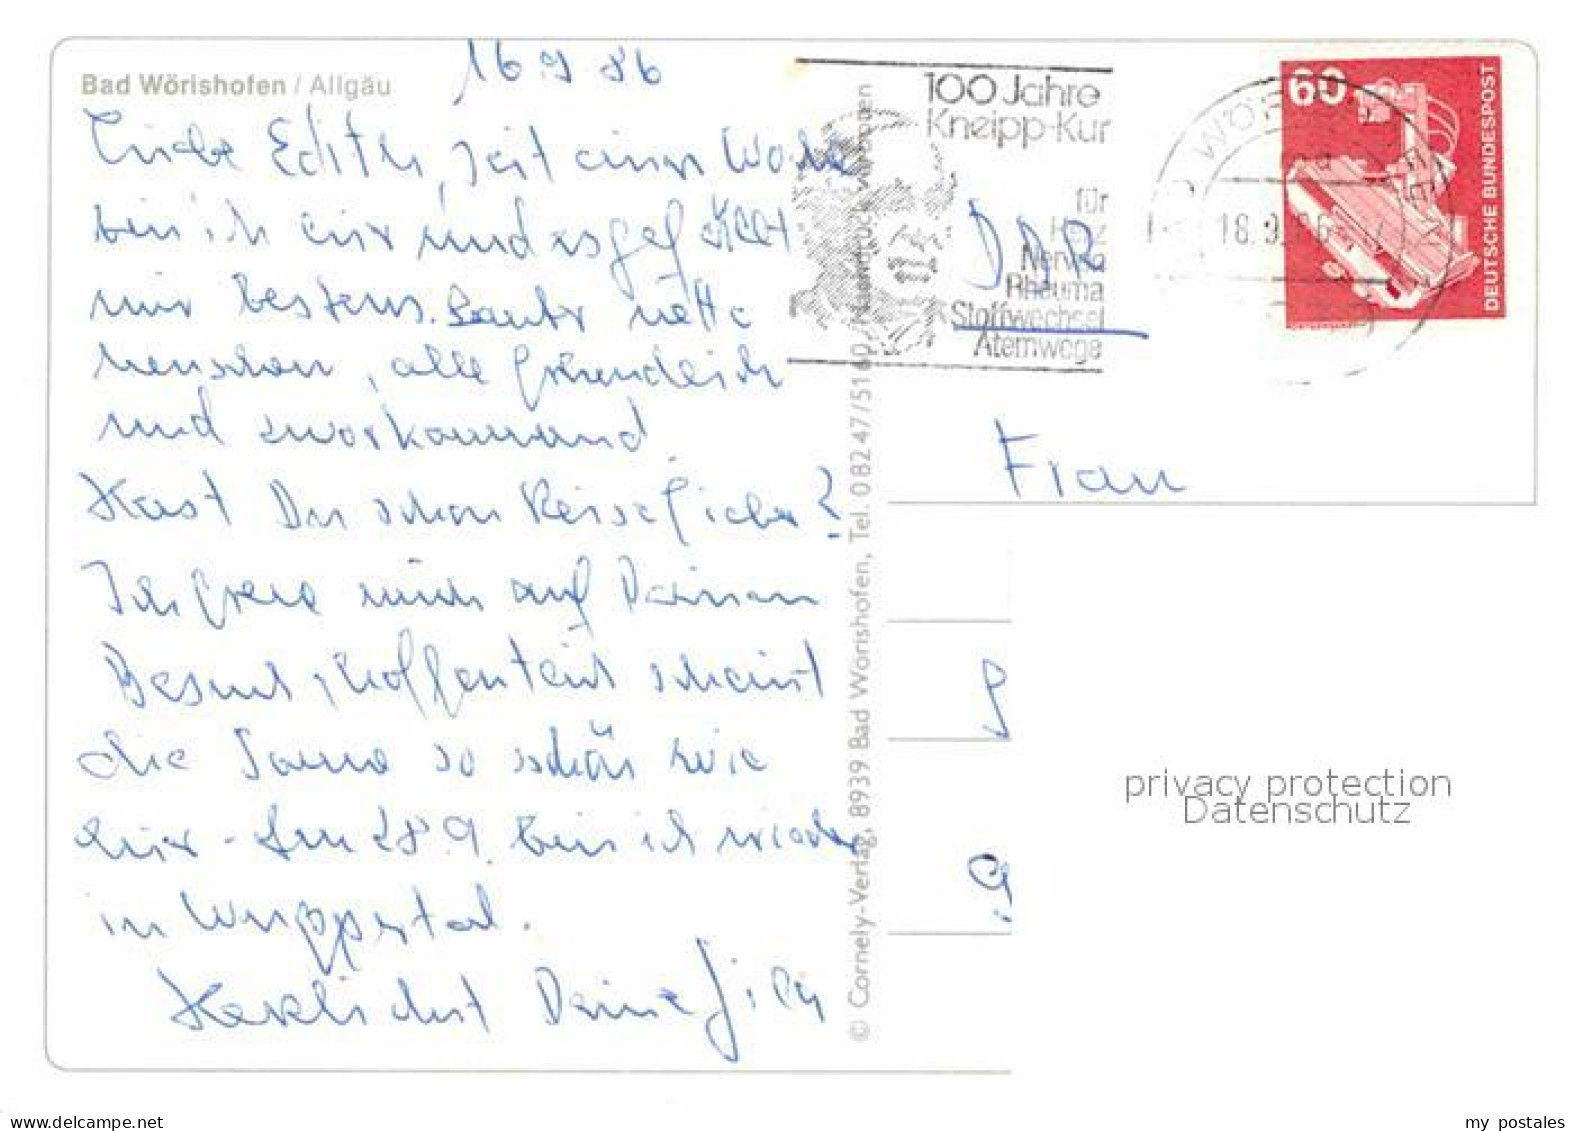 Bad Wörishofen / Allgäu
16 9 86
Liebe Edith, seit einer Woche
bin ich hier und es gefällt
mir bestens. Lauter nette
Menschen, alle freundlich
und zuvorkommend
Hast Du schon Reisefieber?
Ich freue mich auf Deinen
Besuch, hoffentlich scheint
die Sonne so schön wie
hier - Am 28.9. bin ich wieder
in Wuppertal.
Herzlichst Deine
© Cornely-Verlag, 8939 Bad Wörishofen, Tel. 0 82 47/5160, Nachdruck verboten
100 Jahre
Kneipp-Kur
für
Herz
Nerven
Rheuma
Stoffwechsel
Atemwege
DDR
18.9.86
60
DEUTSCHE BUNDESPOST
Frau
privacy protection
Datenschutz
my postales